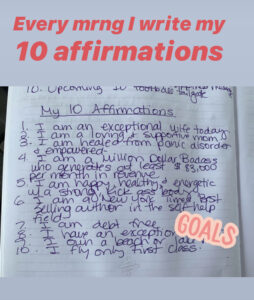 Every mrng I write my
10 affirmations
10. Upcoming
My 10 Affirmations
1. I am an exceptional wife today
2. I am a loving & supportive mom
3. I am healed from panic disorder
& empowered
4. I am a Million Dollar Badass
who generates at least $83,000
per month in revenue
5. I am happy, healthy & energetic
w/a strong kick ass body
6. I am a New York Times Best
Selling author in the self help
field
7. I am debt free
8. I have an exceptional
9. I own a beach or lake
10. I fly only first class.
GOALS